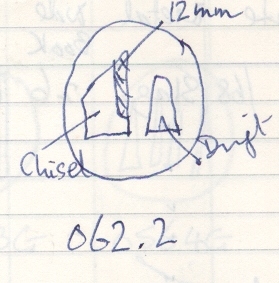 12mm
Chisel
Drift
062.2